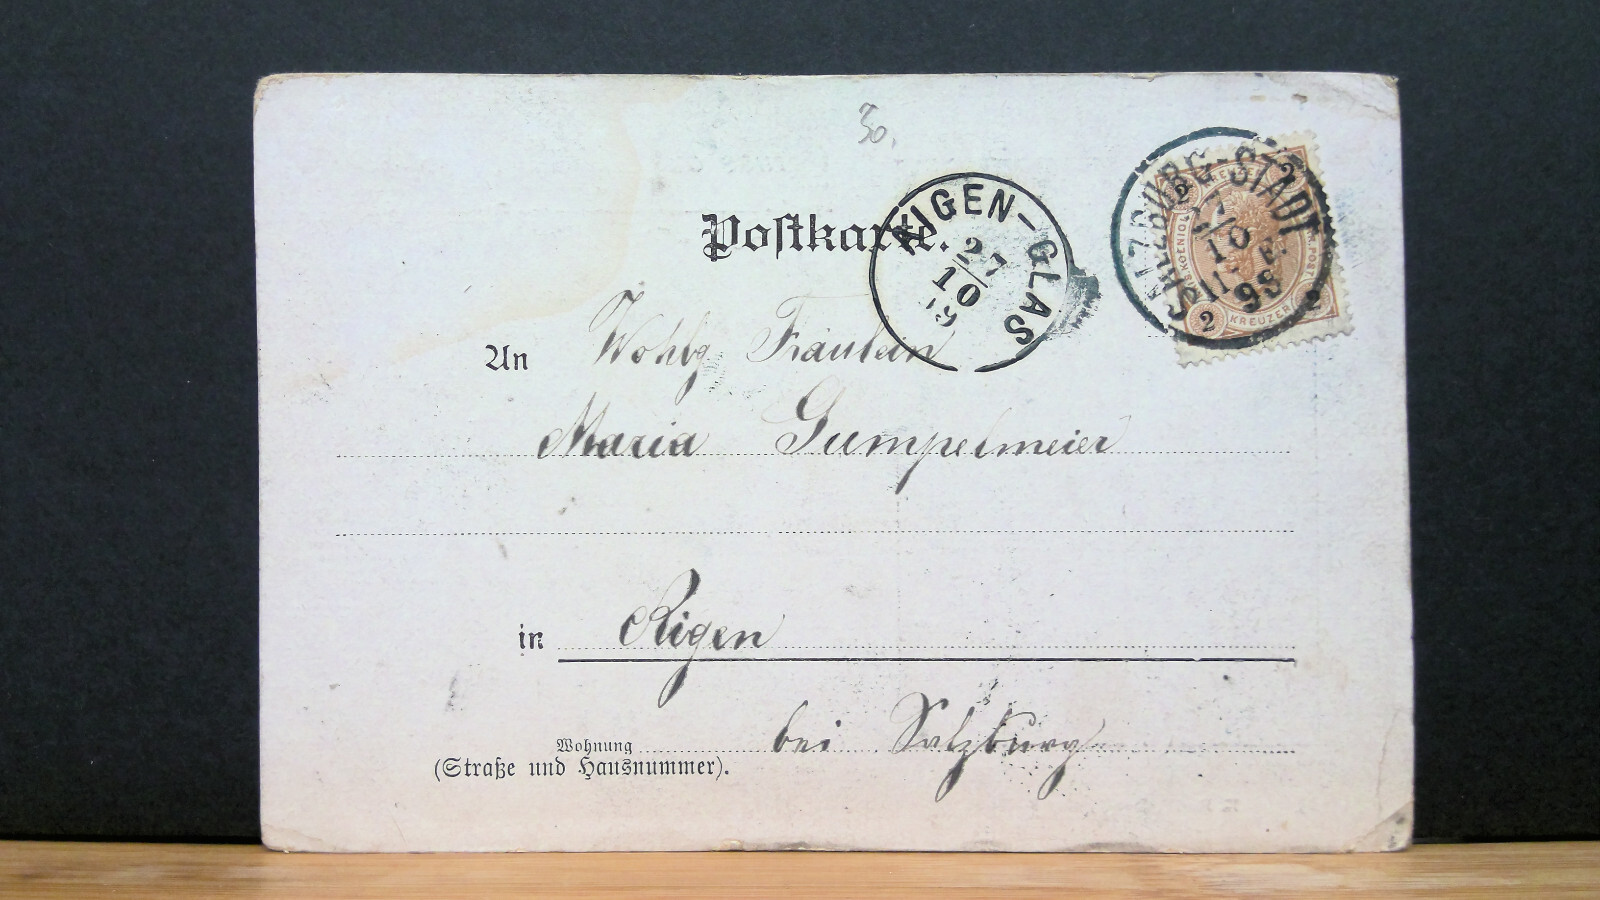 30.
Postkarte.
AIGEN-GLAS
27
10
9
SALZBURG-STADT
10
11. F.
98
2
KREUZER
An Wohlg Fräulein
Maria Gumpelmeier
in Aigen
bei Salzburg
Wohnung
(Straße und Hausnummer).